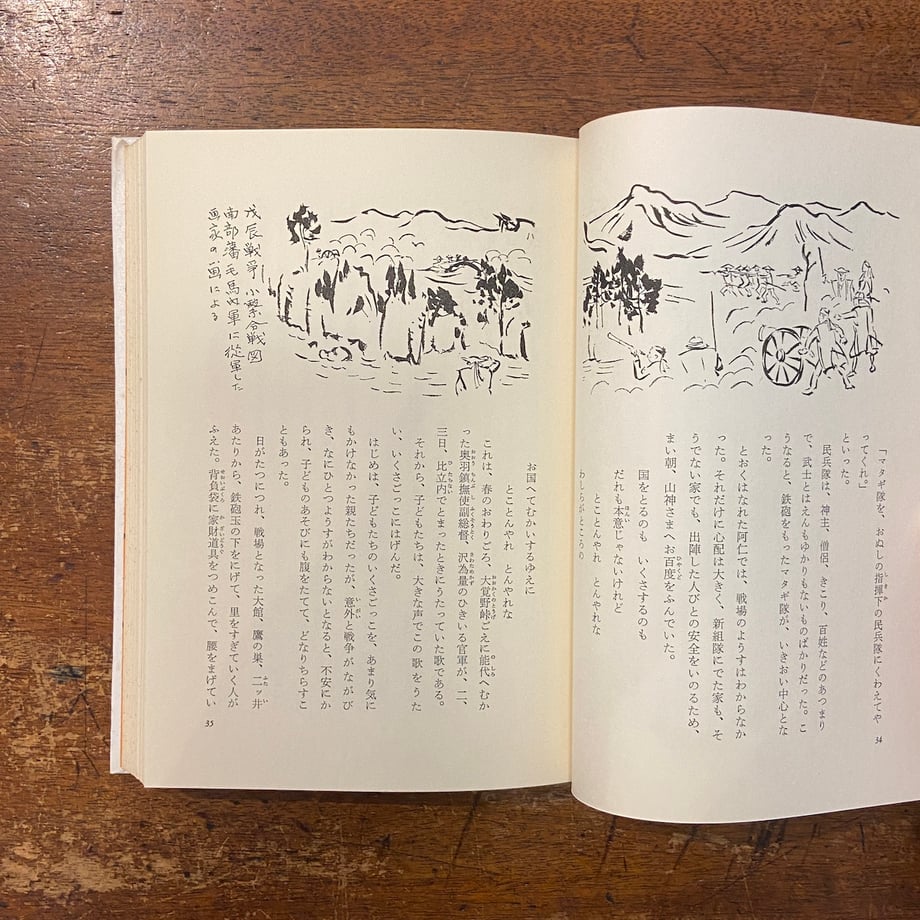 「マタギ隊を、おぬしの指揮下の民兵隊にくわえてや
ってくれ。」
といった。
民兵隊は、神主、僧侶、きこり、百姓などのあつまり
で、武士とはえんもゆかりもないものばかりだった。こ
うなると、鉄砲をもったマタギ隊が、いきおい中心とな
った。
とおくはなれた阿仁では、戦場のようすはわからなか
った。それだけに心配は大きく、新組隊にでた家も、そ
うでない家でも、出陣した人びとの安全をいのるため、
まい朝、山神さまへお百度をふんでいた。
国をとるのも　いくさするのも
だれも本意じゃないけれど
とことんやれ　とんやれな
わしらがところの
34
戊辰戦争 小繋合戦図
南部藩毛馬内軍に従軍した
画家の画による
お国へてむかいするゆえに
とことんやれ　とんやれな
これは、春のおわりごろ、大覚野峠ごえに能代へむか
った奥羽鎮撫使副総督、沢為量のひきいる官軍が、二、
三日、比立内でとまったときにうたっていた歌である。
それから、子どもたちは、大きな声でこの歌をうた
い、いくさごっこにはげんだ。
はじめは、子どもたちのいくさごっこを、あまり気に
もかけなかった親たちだったが、意外と戦争がながび
き、なにひとつようすがわからないとなると、不安にか
られ、子どものあそびにも腹をたてて、どなりちらすこ
ともあった。
日がたつにつれ、戦場となった大館、鷹の巣、二ッ井
あたりから、鉄砲玉の下をにげて、里をすぎていく人が
ふえた。背負袋に家財道具をつめこんで、腰をまげてい
35